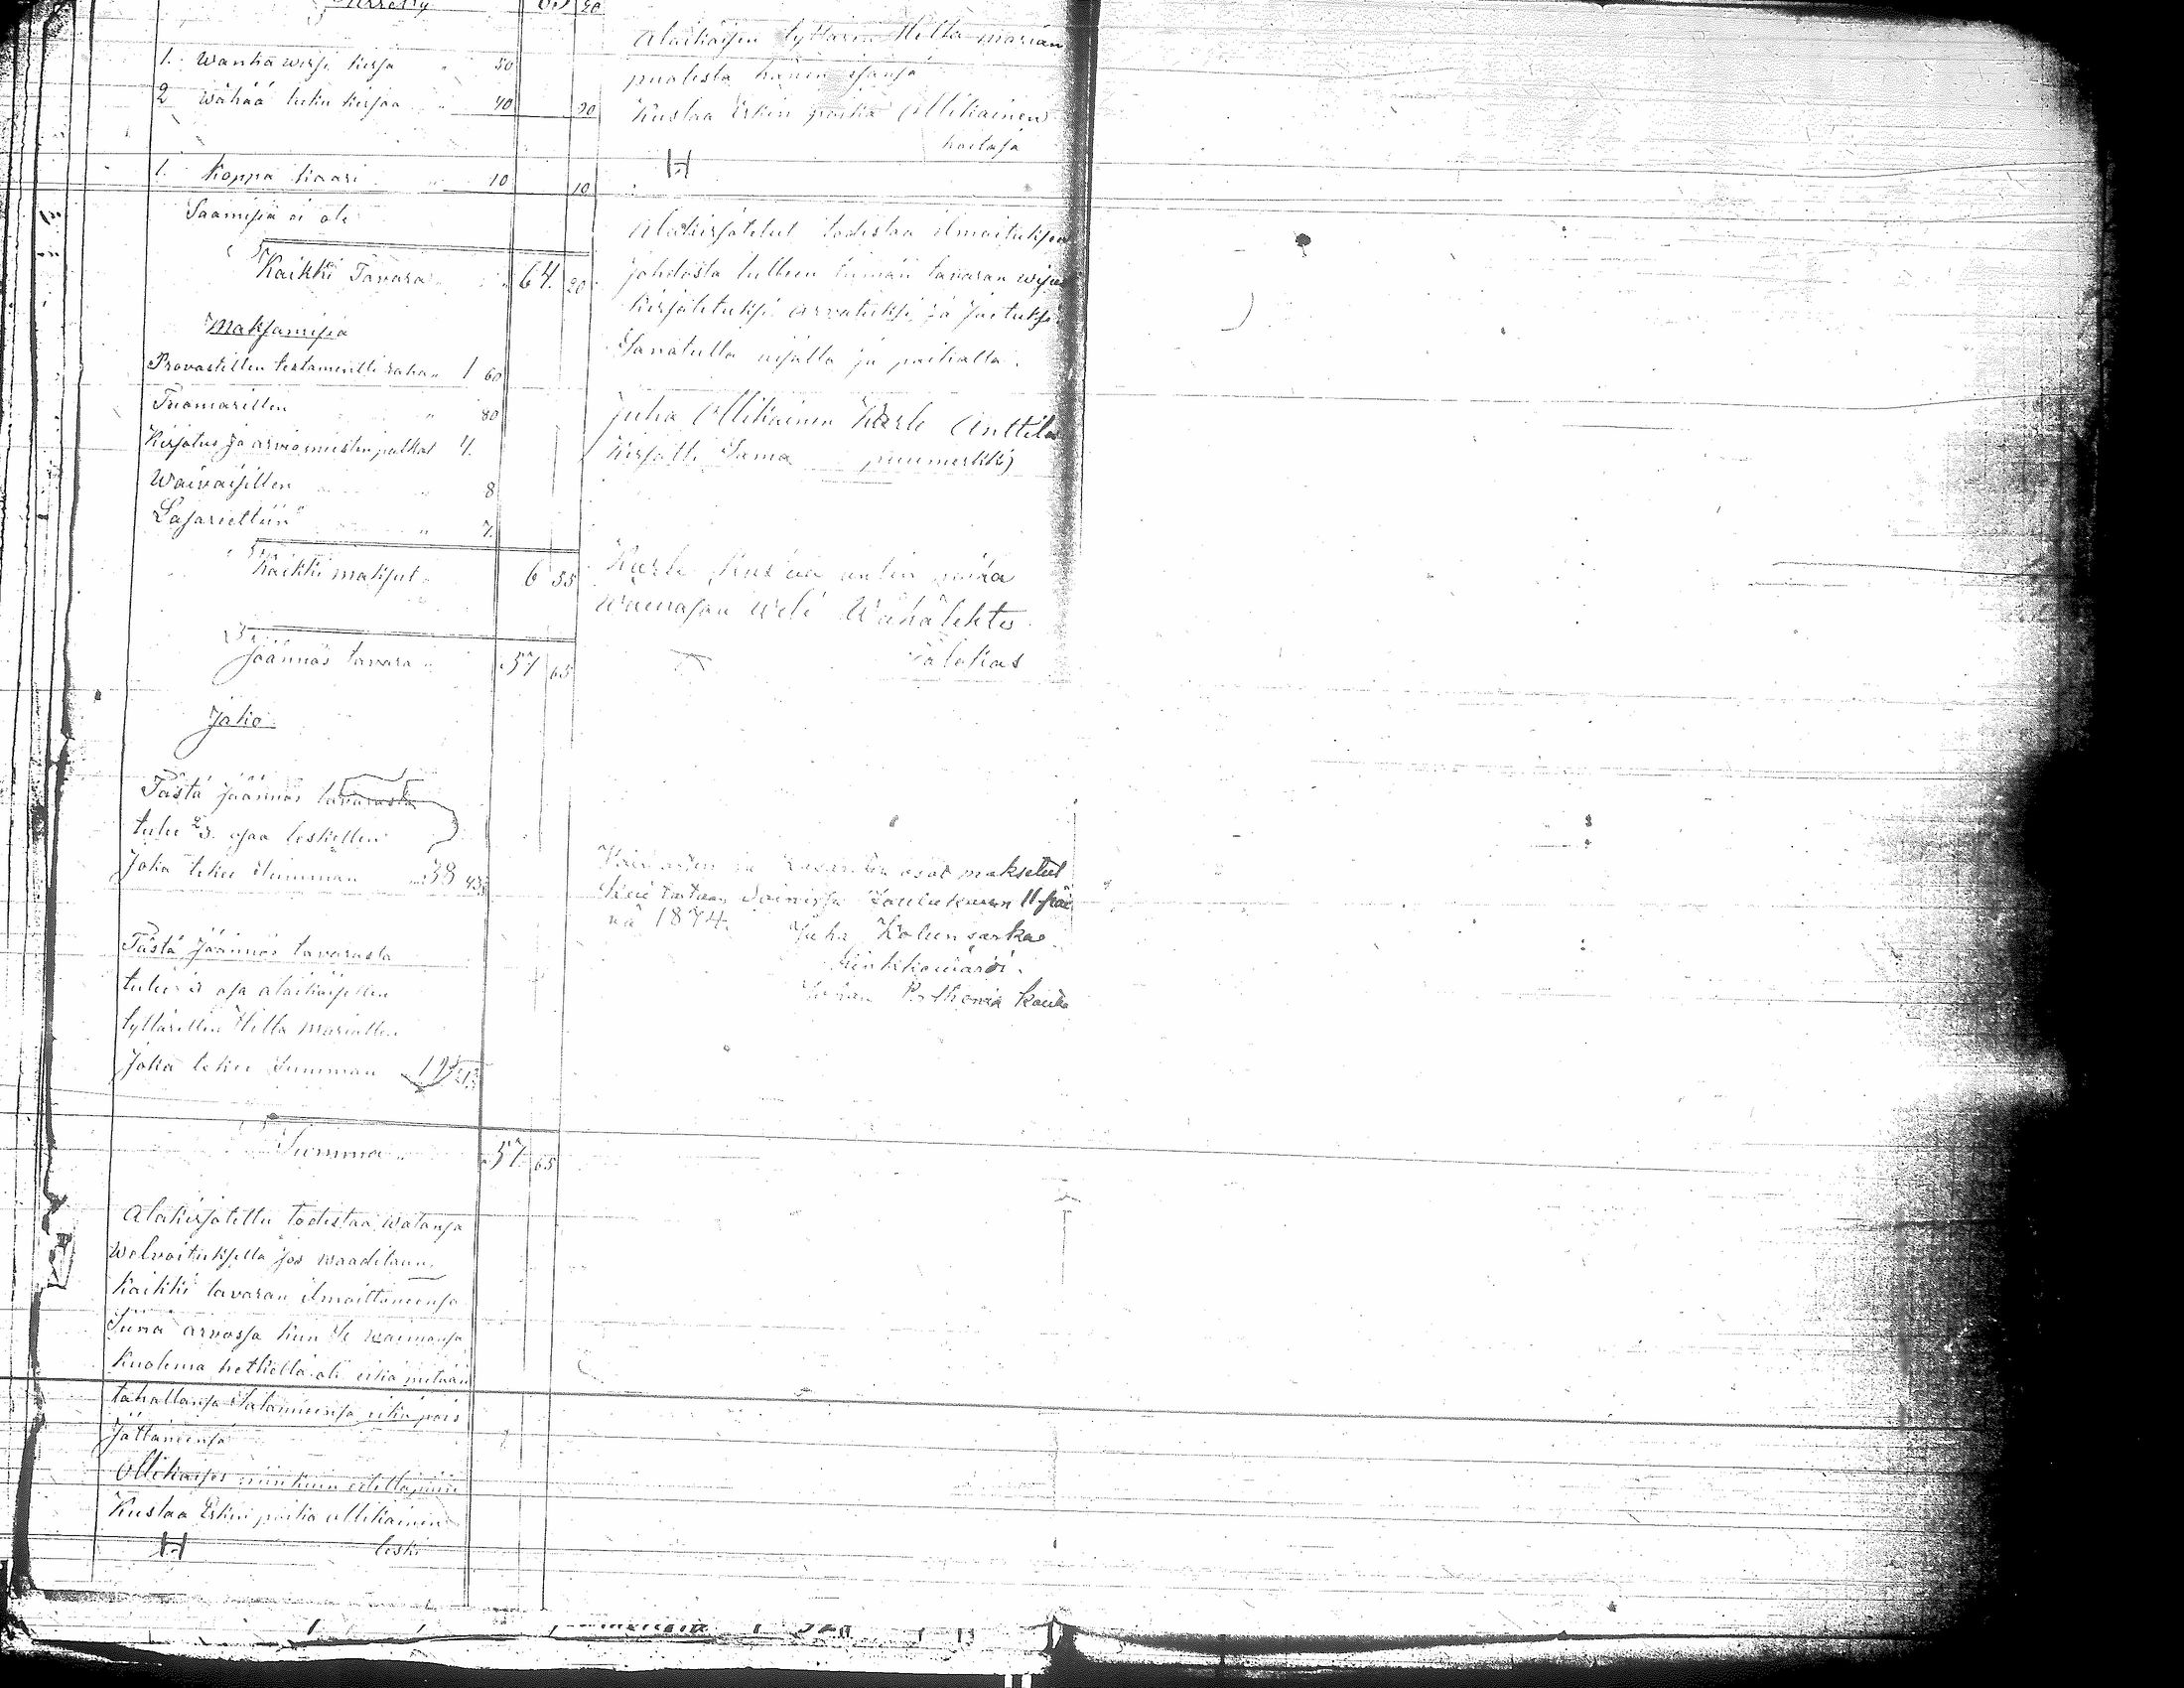 Siirretty 63 20
1. Wanha wirsi kirja " 50
2 wähää luku kirjaa " 40 90
1. Koppa kaari " 10 10
Saamisia ei ole
Kaikki Tavara " 64. 20
Maksamisia
Provastillen testamentti raha " 1 60
Tuomarillen " 80
Kirjotus ja arviomiesten palkat 4.
Waivaisillen " 8
Lasarettiin " 7.
Kaikki maksut " 6 55
Jäännös tavara " 57 65
Jako
Tästä Jäännös tavarasta
tulee 2/3. osaa leskellen
Joka tekee Summan " 38 43
Tästä Jäännös tavarasta
tulee osa alaikäisellen
tyttärellen Hilta Mariallen
Joka tekee Summan 19
Summa " 57 65
Alakirjotettu todistaa watansa
Welvoituksella jos waaditaan
kaikki tavaran ilmoittaneensa
Siinä arvossa kun se waimonsa
kuolema hetkellä oli eikä mitään
tahallansa Salanneensa eikä pois
Jättäneensä
Ollikaises niinkuin edellä
Kustaa Erkin poika Ollikainen
H leski
Alaikäisen tyttären Hilta marian
puolesta hänen isänsä
Kustaa Erkin poika Ollikainen
hoitaja
H
Alakirjotetut todistaa ilmoituksen
Johdosta tulleen tämän tavaran
kirjotetuksi arvatuksi ja Jaetuksi
Sanatulla ajalla ja paikalla.
Juha Ollikainen Karle Anttila
Kirjotti Sama puumerkki
Karle Kustaa antin poika
Wainajan Weli Wähälehto
Waivasten ja Lasaretin osat maksetut
kuitataan Joulukuun 11 päi
nä 1874. Juha Kolunsarka
Kinkkomäröi.
Juhan Porthonia kautta